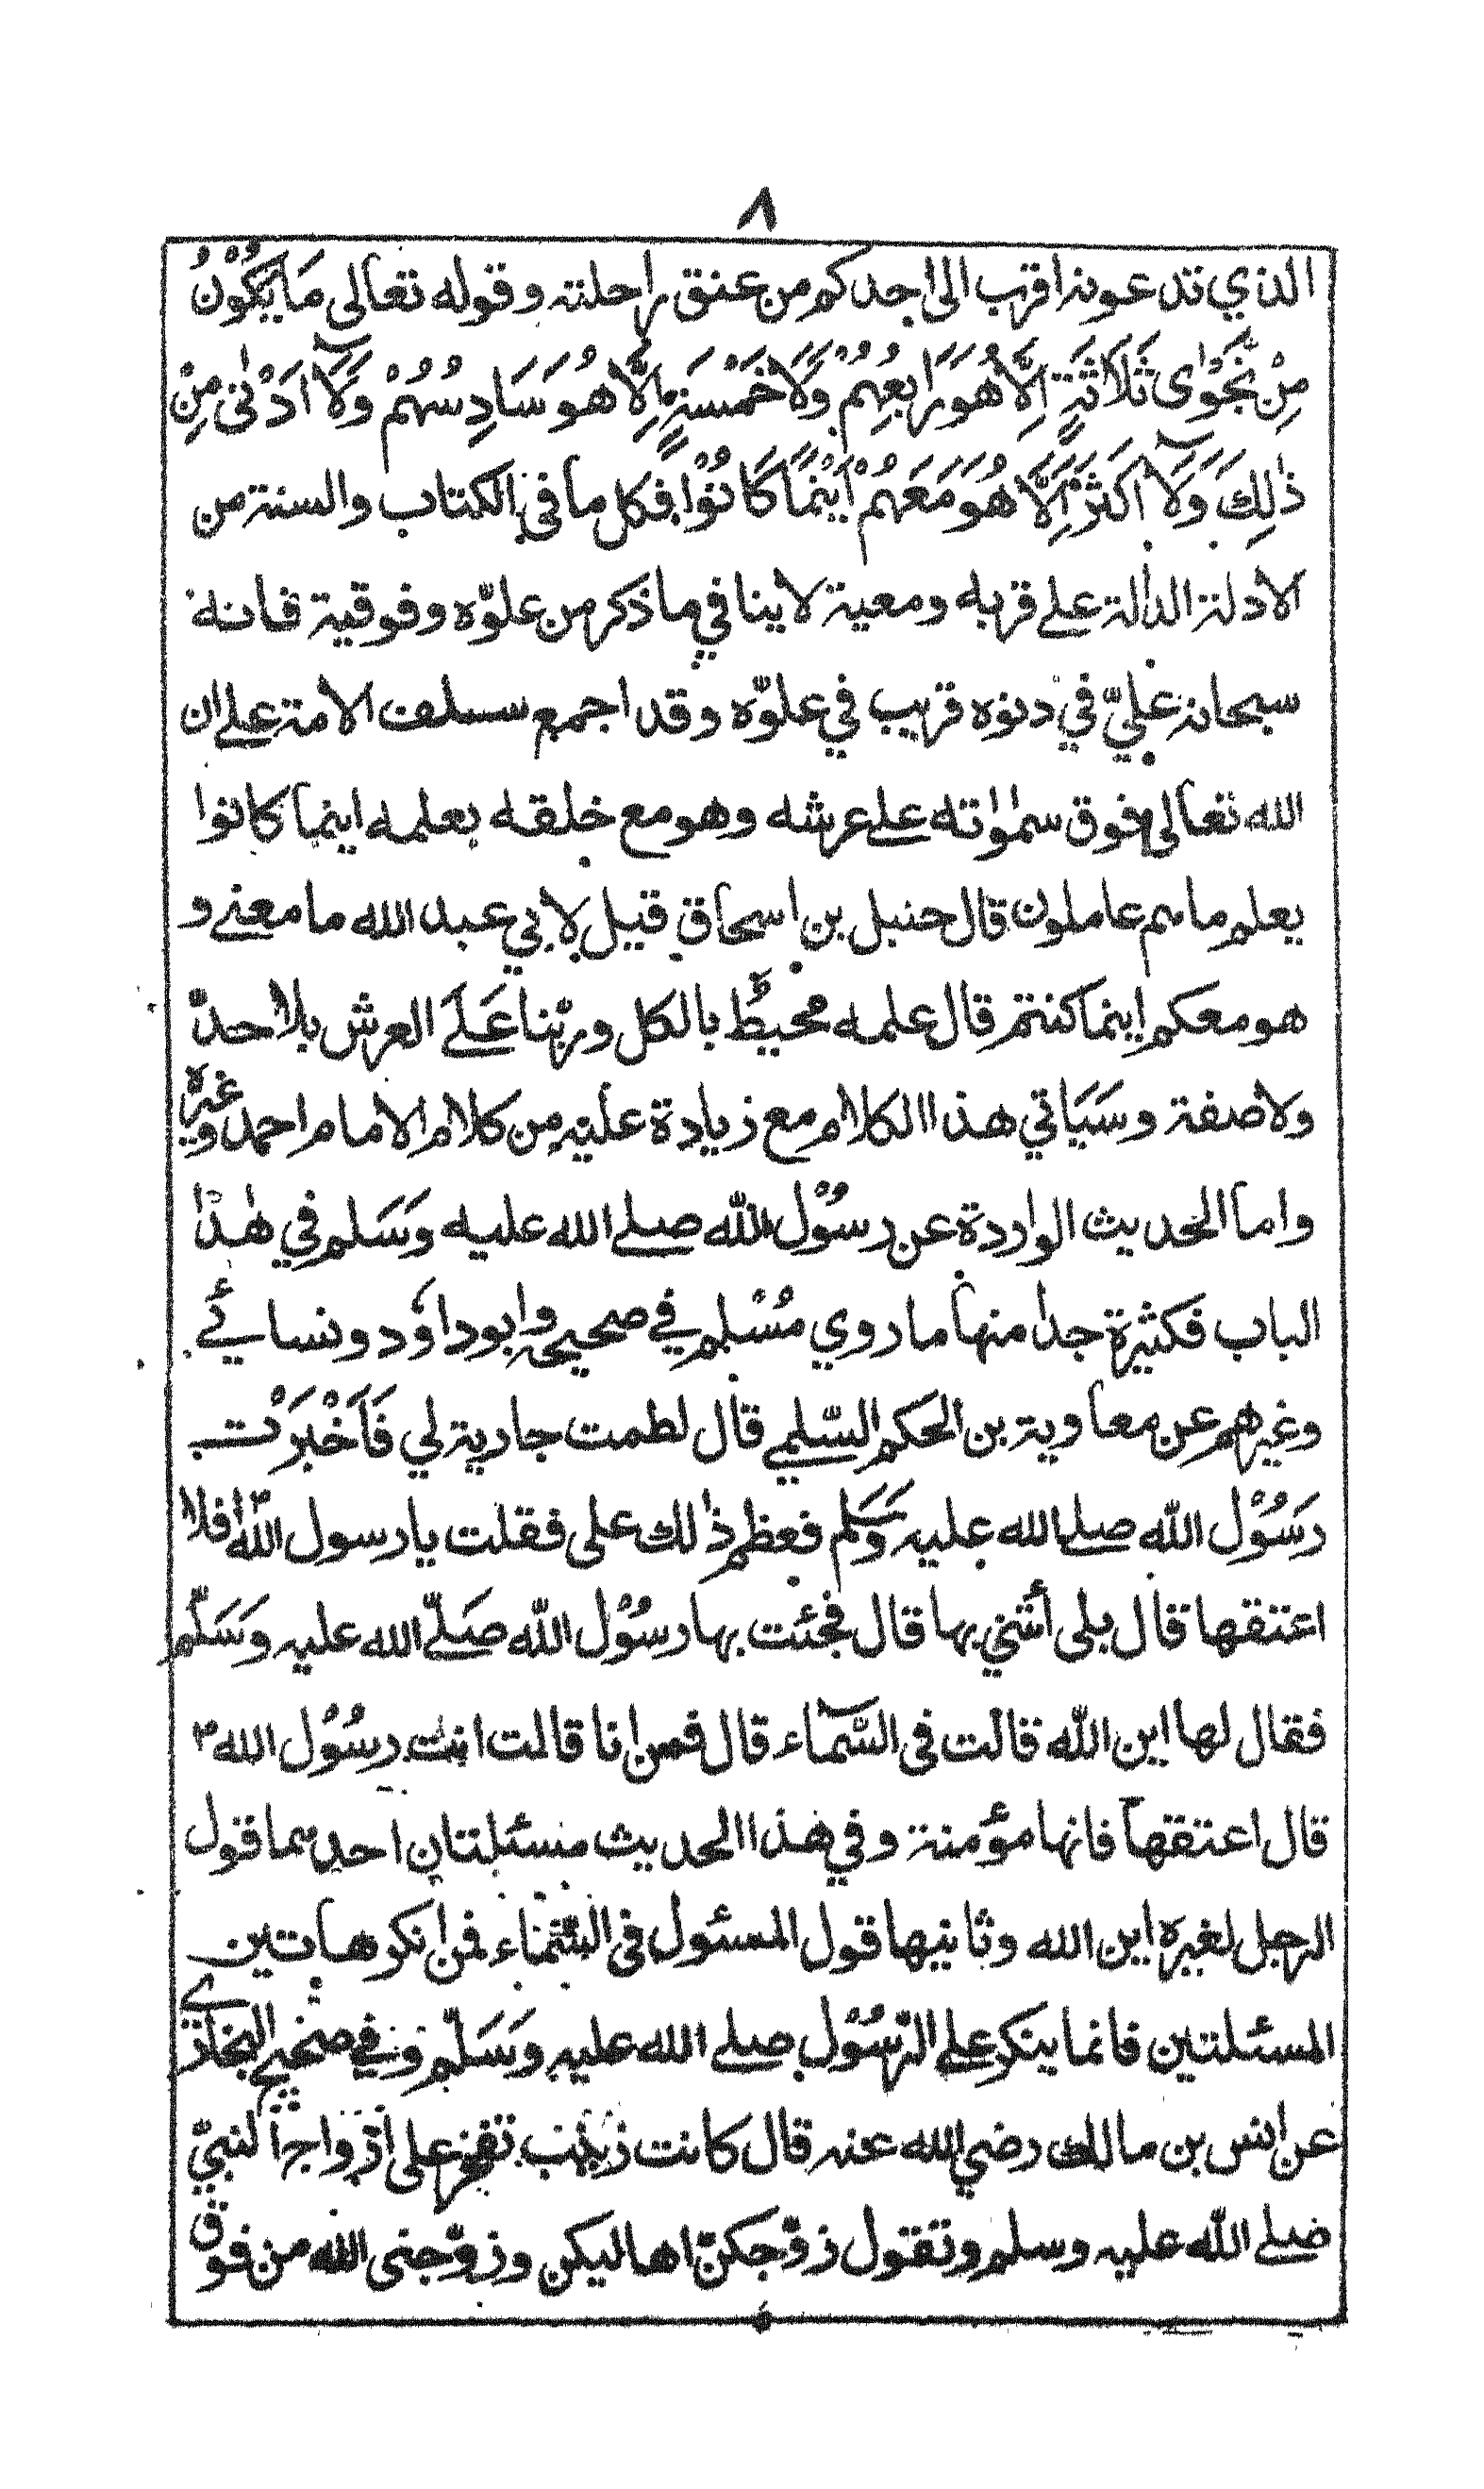 ٨
الذي تدعونه اقرب الى احدكم من عنق راحلته وقوله تعالى مَا يَكُوْنُ
مِنْ نَّجْوٰى ثَلَاثَةٍ اِلَّا هُوَ رَابِعُهُمْ وَلَا خَمْسَةٍ اِلَّا هُوَ سَادِسُهُمْ وَلَآ اَدْنٰى مِنْ
ذٰلِكَ وَلَآ اَكْثَرَ اِلَّا هُوَ مَعَهُمْ اَيْنَمَا كَانُوْا فكل ما في الكتاب والسنة من
الادلة الدالة على قربه ومعية لا ينافي ما ذكر من علوّه وفوقية فانه
سبحانه عليّ في دنوه قريب في علوّه وقد اجمع سلف الامة على ان
الله تعالى فوق سمٰوٰته على عرشه وهو مع خلقه بعلمه اينما كانوا
يعلم ما هم عاملون قال حنبل بن اسحاق قيل لابي عبد الله ما معنى و
هو معكم اينما كنتم قال علمه محيطٌ بالكل وربّنا عَلَى العرش بلا حدّ
ولا صفة وسَيَاتي هذا الكلام مع زيادة عليه من كلام الامام احمد وغيره
واما الحديث الواردة عن رسُوْل الله صلى الله عليه وَسَلم في هٰذا
الباب فكثيرة جدا منها ما روي مُسْلم في صحيحه وابو داوٗد ونسائي
وغيرهم عن معاوية بن الحكم السّلمي قال لطمت جارية لي فَاَخْبَرْت
رَسُوْل الله صلى الله عليه وَسَلم فعظم ذٰلك على فقلت يا رسول الله افلا
اعتقها قال بلى أئتني بها قال فجئت بها رسُوْل الله صَلّى الله عليه وَسَلّم
فقال لها اين الله قالت في السَّمآء قال فمن انا قالت انت رسُوْل الله ؐ
قال اعتقها فانها مؤمنة وفي هذا الحديث مسئلتان احدهما قول
الرجل لغيره اين الله وثانيها قول المسئول في السماء فمن انكر هاتين
المسئلتين فانما ينكر على الرّسُوْل صلى الله عليه وَسَلّم وفي صحيح البخاري
عن انس بن مالك رضي الله عنه قال كانت زينب تفخر على ازواج النبيّ
صلى الله عليه وسلم وتقول زوّجكنّ اهاليكن وزوّجنى الله من فوق